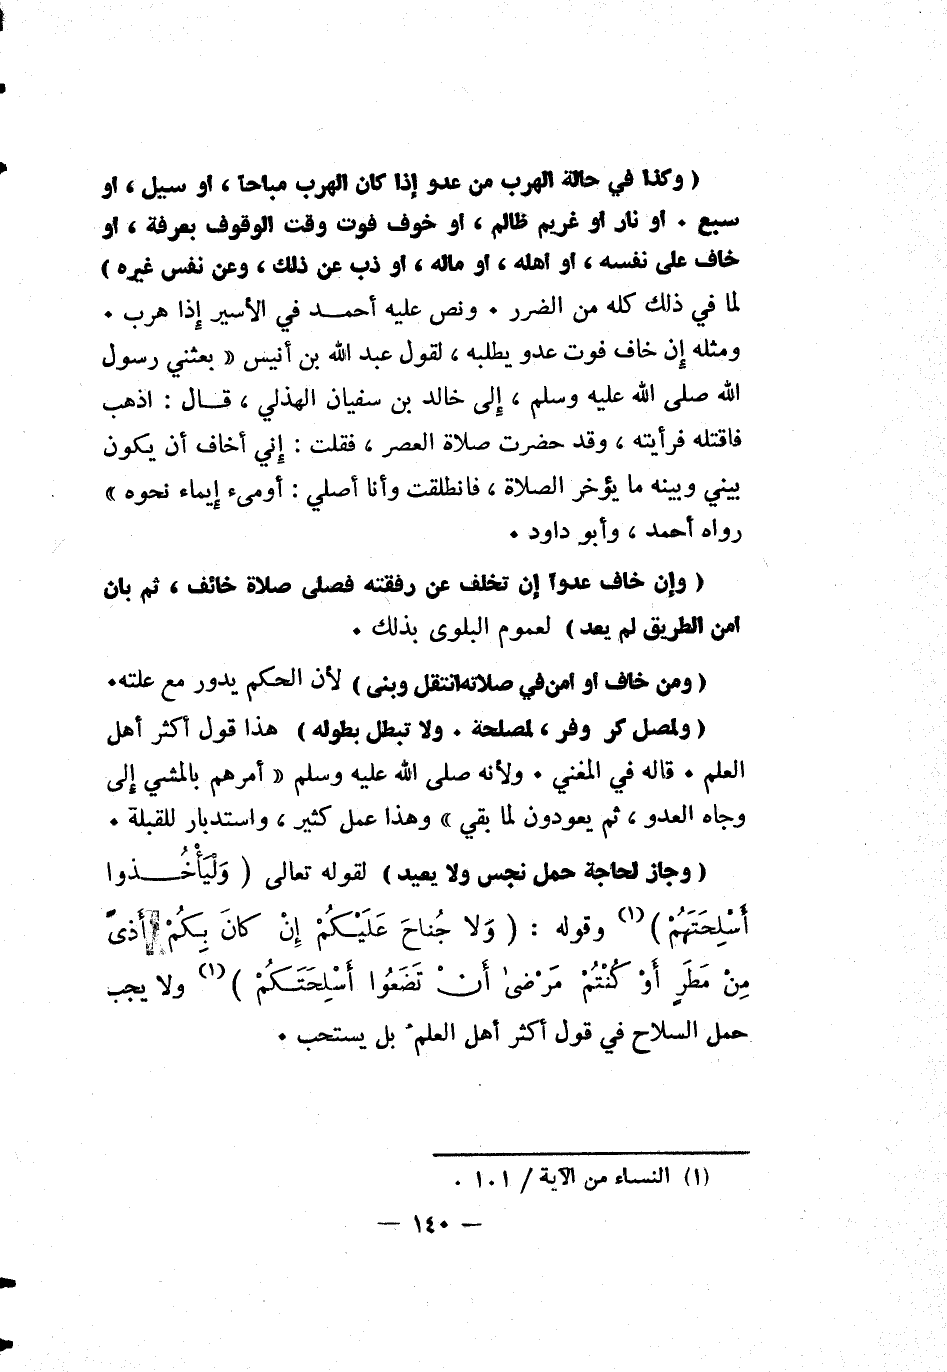 ( وكذا في حالة الهرب من عدو إذا كان الهرب مباحاً ، او سيل ، او
سبع . او نار او غريم ظالم ، او خوف فوت وقت الوقوف بعرفة ، او
خاف على نفسه ، او اهله ، او ماله ، او ذب عن ذلك ، وعن نفس غيره )
لما في ذلك كله من الضرر . ونص عليه أحمـــد في الأسير إذا هرب .
ومثله إن خاف فوت عدو يطلبه ، لقول عبد الله بن أنيس « بعثني رسول
الله صلى الله عليه وسلم ، إلى خالد بن سفيان الهذلي ، قــال : اذهب
فاقتله فرأيته ، وقد حضرت صلاة العصر ، فقلت : إني أخاف أن يكون
بيني وبينه ما يؤخر الصلاة ، فانطلقت وأنا أصلي : أومىء إيماء نحوه »
رواه أحمد ، وأبو داود .
( وإن خاف عدواً إن تخلف عن رفقته فصلى صلاة خائف ، ثم بان
امن الطريق لم يعد ) لعموم البلوى بذلك .
( ومن خاف او امن في صلاته انتقل وبنى ) لأن الحكم يدور مع علته .
( ولمصل كر وفر ، لمصلحة . ولا تبطل بطوله ) هذا قول أكثر أهل
العلم . قاله في المغني . ولأنه صلى الله عليه وسلم « أمرهم بالمشي إلى
وجاه العدو ، ثم يعودون لما بقي » وهذا عمل كثير ، واستدبار للقبلة .
( وجاز لحاجة حمل نجس ولا يعيد ) لقوله تعالى ( وَلْيَأْخُـــذُوا
أَسْلِحَتَهُمْ ) (١) وقوله : ( وَلا جُناحَ عَلَيْكُمْ إِنْ كانَ بِكُمْ أَذىً
مِنْ مَطَرٍ أَوْ كُنْتُمْ مَرْضىٰ أَنْ تَضَعُوا أَسْلِحَتَكُمْ ) (١) ولا يجب
حمل السلاح في قول أكثر أهل العلم بل يستحب .
(١) النساء من الآية / ١٠١ .
— ١٤٠ —